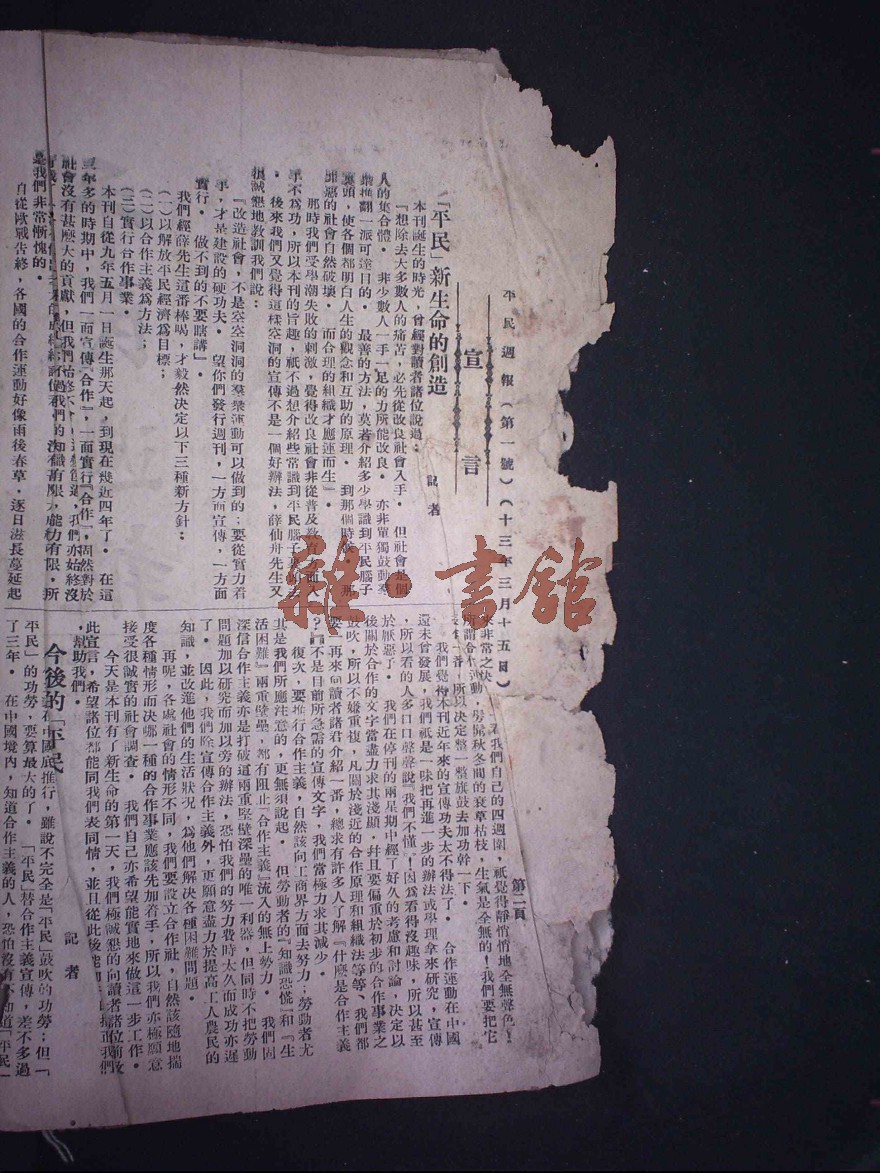 平民週報（第一號）（十三年三月十五日）
第二頁
宣言
「平民」新生命的創造
記者
本刊誕生的時光，曾經對讀者諸位說過：
「想除去大多數人的痛苦，必先從改良社會入手。但社會是個
人的集合體。非少數人一手一足的力所能改良。亦非單獨鼓動羣
衆推翻一派可達目的。最善的方法，莫若介紹多少學識到平民腦子
裏頭，使各個都明白人生的觀念和互助的原理。到那個時候，那
罪惡的社會自然破壞。而合理的組織才應運而生』。
那時我們受學潮失敗的刺激，覺得改良社會非從普及教育方面入
手不爲功，所以本刊的旨趣，祇不過想介紹些常識到平民腦子裏
。後來我們又覺得這樣空洞的宣傳不是一個好辦法，薛仙舟先生又
很誠懇地教訓我們說：
『改造社會，不是空空洞洞的羣衆運動可以做到的；要從實力着
手，才是建設的硬功夫。望你們發行週刊，一方面宣傳，一方面
實行。做不到的不要瞎講』。
我們經薛先生這番棒喝，才毅然決定以下三種新方針：
（一）以解放平民經濟爲目標；
（二）以合作主義爲方法；
（三）實行合作事業。
本刊自從九年五月一日誕生那天起，到現在幾近四年了。在這
三年多的時期中，我們一面宣傳『合作』，一面實行『合作』，固然對於
社會沒有甚麽大的貢獻，但我們始終不
過我們的知識有限，能力有限，所
是我們非常慚愧的。
自從歐戰告終，各國的合作運動好像雨後春草，逐日滋長蔓延起
來非常之快。看我們自己的四週圍，祇覺得靜悄悄地全無聲色！
所謂合作運動，勞髴秋冬間的衰草枯枝，生氣是全無的！我們要把它
一番，所以決定整一整旗鼓去加功幹一下。
我們覺得本刊近年來的宣傳功夫太不得法了。合作運動在中國
還未曾發展，我們祇是一味把再進一步的辦法或學理拿來研究，宣傳
，所以看的人多口口聲聲說『我們不懂』！因爲看得沒趣味，所以甚至
於厭惡了。我們在停刊的兩星期中經了好久的考慮和討論，決定以
後關於合作的文字當盡力求其淺顯。幷且要偏重於初步的合作事業之
鼓吹，所以不嫌重複，凡關於淺近的合作原理和組織法等等、我們都
要一再來向讀者諸君介紹一番，總求有許多人了解『什麽是合作主義
？』不是目前所急需的宣傳文字，我們當極力求其減少。
復次，要推行合作主義，自然該向工商界方面去努力；勞動者尤
其是我們所應注意的，更無須說起。但勞動者的『知識恐慌』和『生
活困難』兩重壁壘，都有阻止『合作主義』流入的無上勢力。我們固
深信合作主義亦是打破這兩重堅壁深壘的唯一利器，但同時不把勞動
問題加以研究而加以旁的辦法，恐怕我們的努力費時太久而成功亦遲
了。因此，我們除宣傳合作主義外，更願意盡力於提高工人農民的
知識，並改進他們的生活狀況，爲他們解決各種困難問題。
再呢，各處社會的情形不同，我們要設立合作社，自然該隨地揣
度各種情形而決哪一種的合作事業應該先加着手，所以我們亦極願意
接受很誠實的社會調查。我們自己亦希望能實地來做這一步工作。
今天是本刊有了新生命的第一天，我們極誠懇的向讀者諸位前致
此宣言，希望諸位都能同我們表同情，並且從此後能
，幫助我們。
今後的「平民」
記者
在中國底推行，雖說不完全是「平民」鼓吹的功勞；但「
平民」的功勞，要算最大的了。「平民」替合作主義宣傳，差不多過
了三年。在中國境內，知道合作主義的人，恐怕沒有不知道「平民」
雜·書館